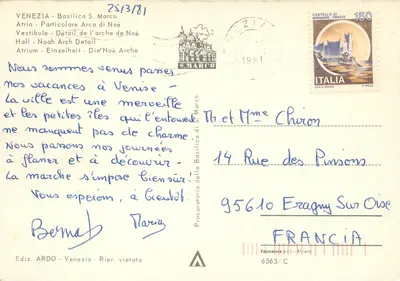 25/3/81
VENEZIA - Basilica S. Marco
Atrio - Particolare Arco di Noè
Vestibule - Détail de l'arche de Noé
Hall - Noah Arch Detail
Atrium - Einzelheit - Die Noè Arche
VENEZIA
1981
S. MARCO
CASTELLO DI
MIRAMARE - TRIESTE
150
ITALIA
Nous sommes venus passer
nos vacances à Venise -
La ville est une merveille
et les petites îles qui l'entourent
ne manquent pas de charme.
Nous passons nos journées
à flâner et à découvrir.
La marche s'impose bien sûr !
Nous espérons, à bientôt.
Bernard Maria
Procuratoria della Basilica di S. Marco
M. et Mme Chiron
14 Rue des Pinsons
95610 Eragny Sur Oise
FRANCIA
Ediz. ARDO - Venezia - Ripr. vietata
6563/C